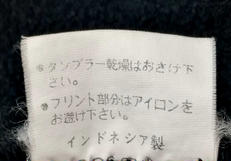 ※タンブラー乾燥はおさけ下
さい。
※プリント部分はアイロンを
お避け下さい。
インドネシア製